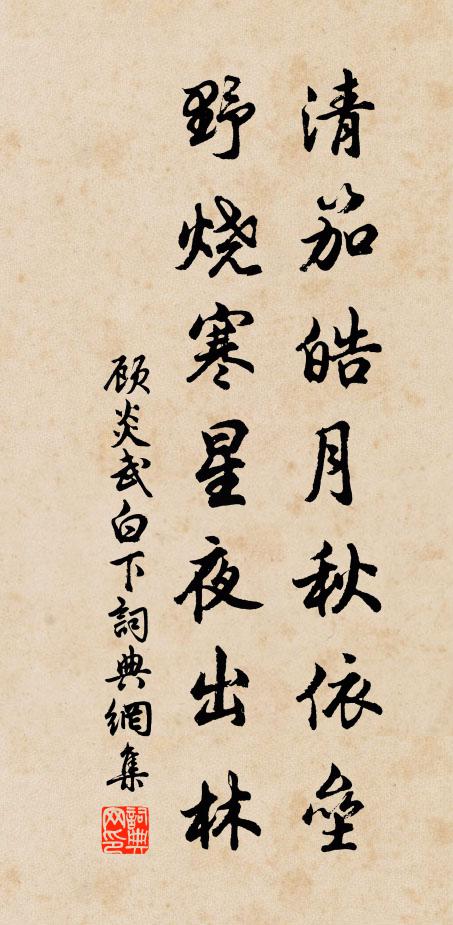 清笳皓月秋依垒
野烧寒星夜出林
顾炎武白下詞典網集
詞典网印